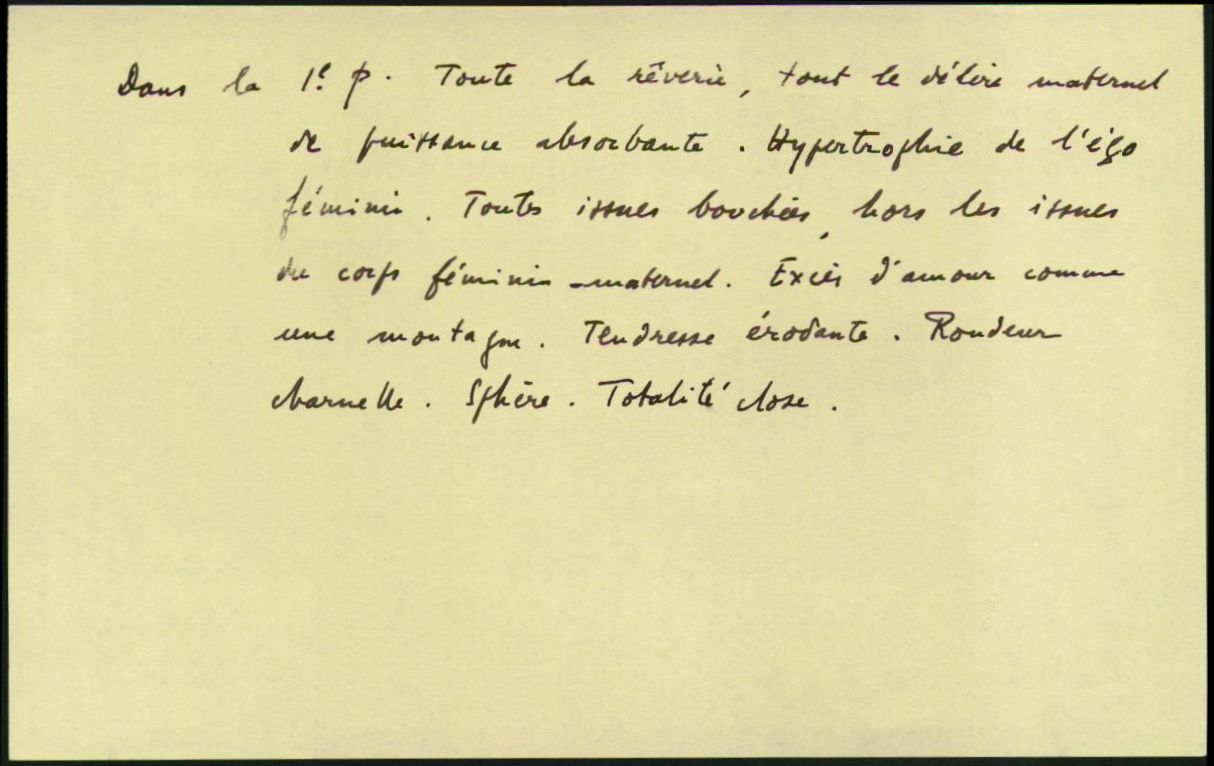 Dans la 1e p. Toute la rêverie, tout le délire maternel
de puissance absorbante. Hypertrophie de l'égo
féminin. Toutes issues bouchées, hors les issues
du corps féminin-maternel. Excès d'amour comme
une montagne. Tendresse érodante. Rondeur
charnelle. Sphère. Totalité close.